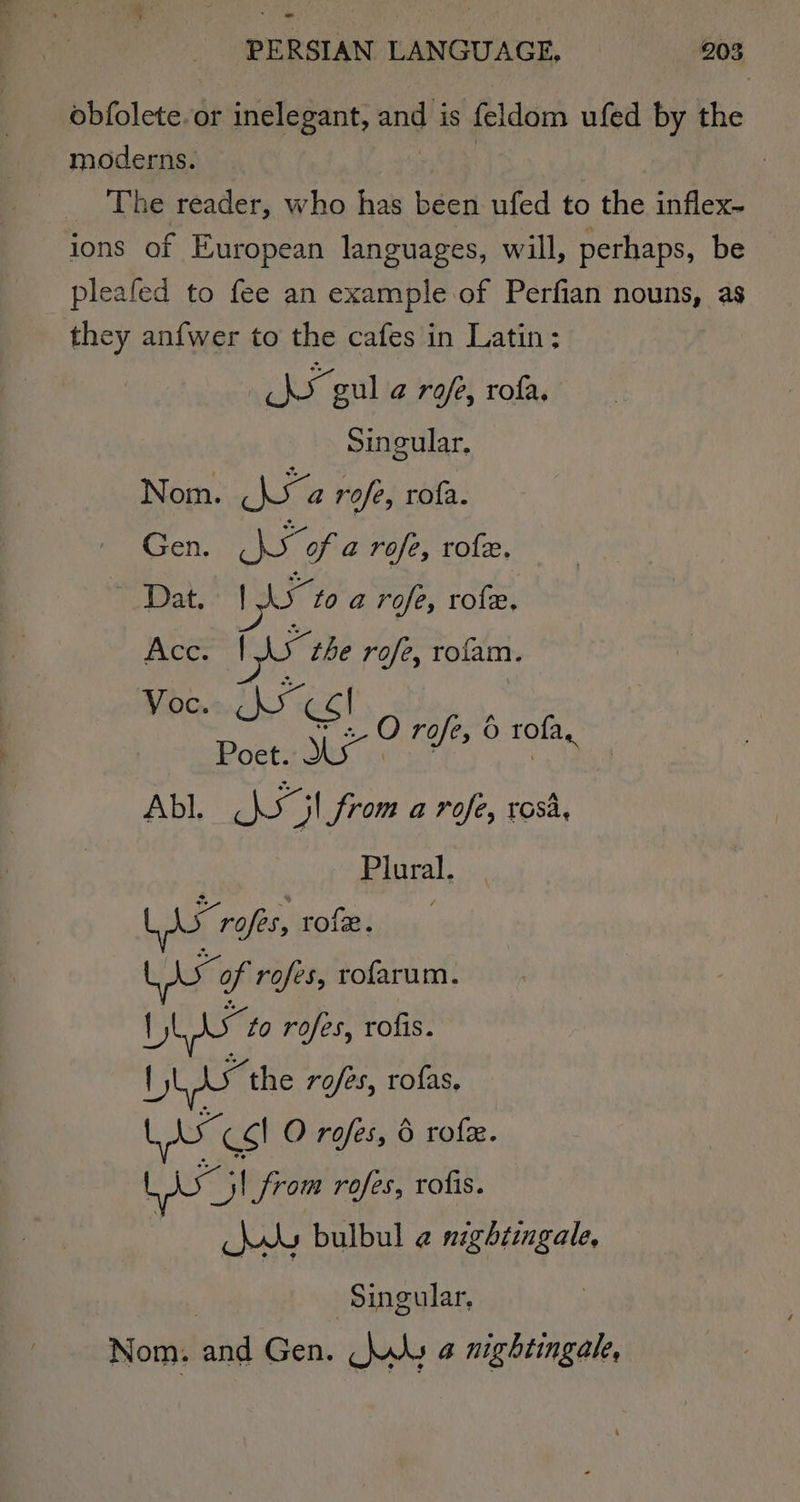 PERSIAN LANGUAGE. 203
obſolete or inelegant, and is ſeldom uſed by the
moderns.
The reader, who has been uſed to the inflex-
ions of European languages, will, perhaps, be
pleaſed to ſee an example of Perſian nouns, as
they anſwer to the caſes in Latin:
گل gul a roſe, roſa.
Singular.
Nom. گل a roſe, roſa.
Gen. گل of a roſe, roſæ.
Dat. گلرا to a roſe, roſæ.
Acc. گلرا the roſe, roſam.
Voc. ای گل
Poet. گلا
O roſe, ô roſa,
Abl. از گل from a roſe, rosâ.
Plural.
گلها roſes, roſæ.
گلها of roſes, roſarum.
گلهارا to roſes, roſis.
گلهارا the roſes, roſas.
ای گلها O roſes, ô roſæ.
از گلها from roſes, roſis.
بلبل bulbul a nightingale.
Singular.
Nom. and Gen. بلبل a nightingale,